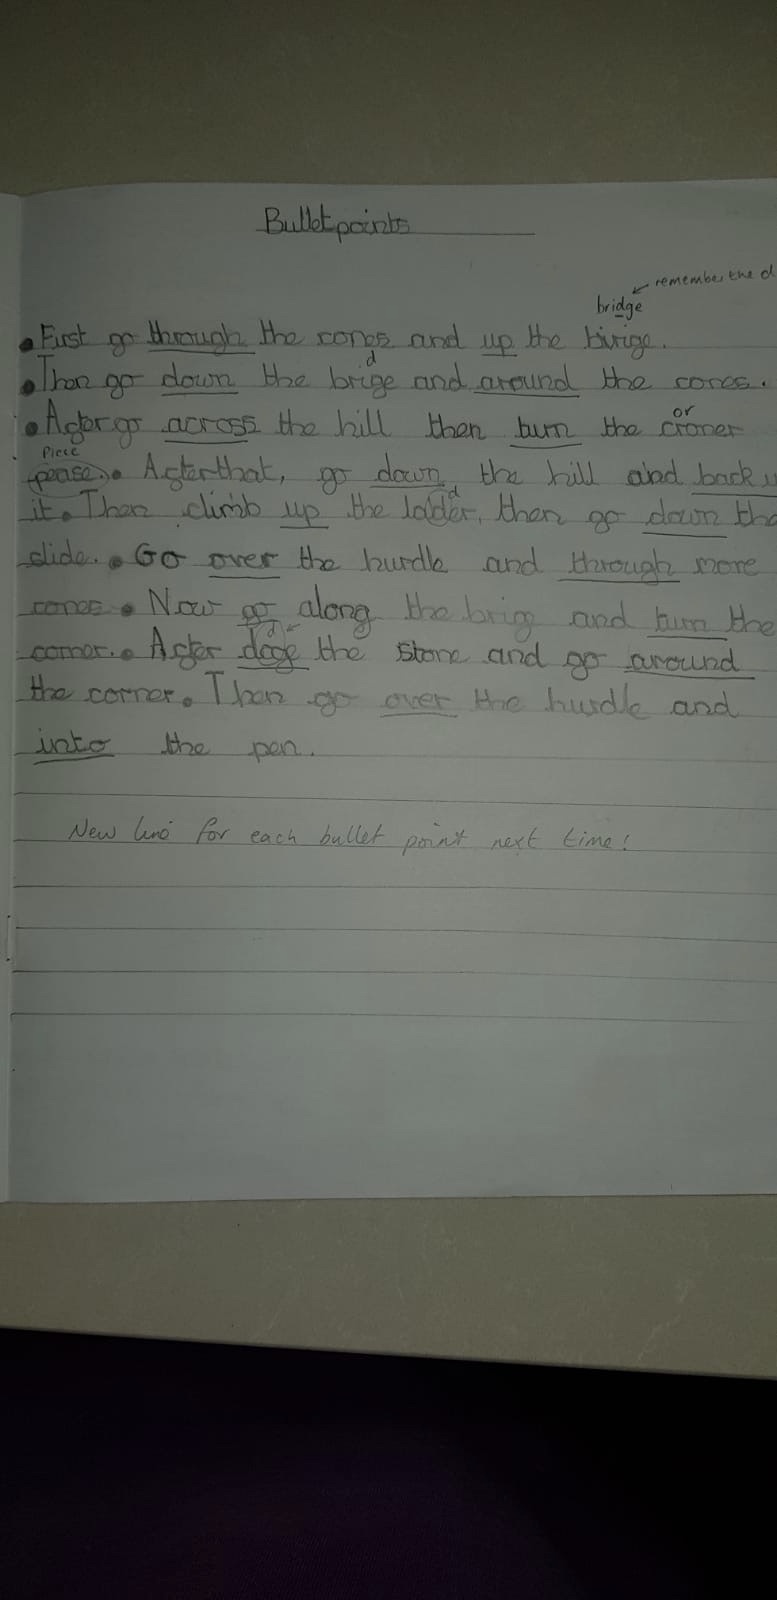 Bullet points
remember the d
bridge
• First go through the cones and up the birige.
d
• Then go down the brige and around the cones.
or
• After go across the hill then turn the croner
Piece
pease. • After that, go down the hill and back u
it. • Then climb up the lader, then go down the
d
slide. • Go over the hurdle and through more
cones • Now go along the brig and turn the
d
corner. • After doge the stone and go around
the corner. • Then go over the hurdle and
into the pen.
New line for each bullet point next time!